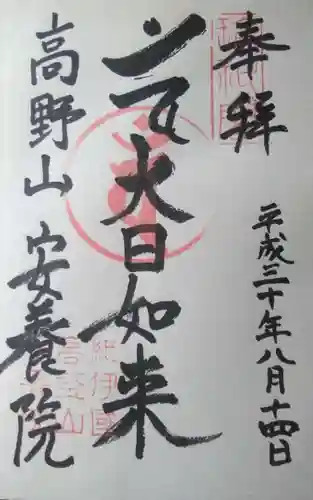 奉拝
平成三十年八月十四日
大日如来
高野山 安養院
紀伊國
高野山